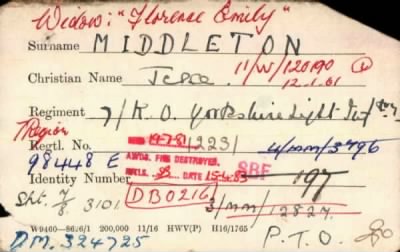 Widow: "Florence Emily"
Surname MIDDLETON
Christian Name Jesse 11/W/120190
12.1.61
Regiment 7/K.O. Yorkshire Light Inftry
Region
Regtl. No. 14-7-81 2231 4/MM/3796
98448 E AWDS. FILE DESTROYED.
Identity Number DATE 15-4-83 SBF 197
Sht. 7/8 3101 DB0216 3/MM/12827
P.T.O.
W9460—8626/1 200,000 11/16 HWV(P) H16/1765
DM.324725